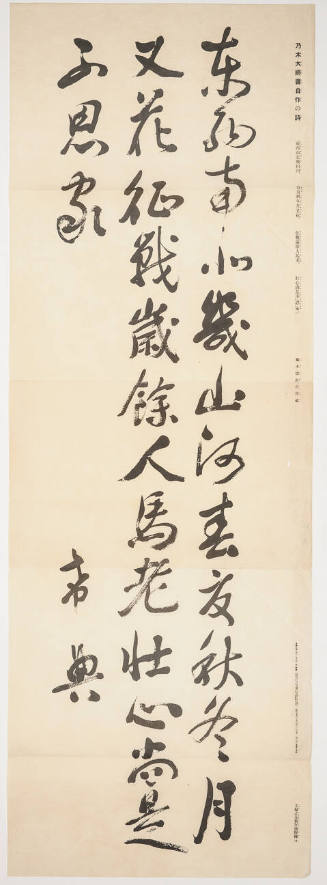 乃木大將書自作の詩
東西南北幾山河春夏秋冬月
又花征戰歳餘人馬老壯心尚是
不思家
希典